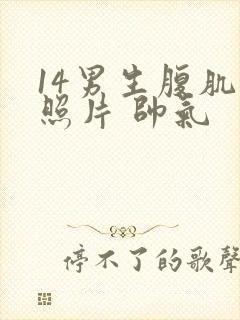 14男生腹肌
照片 帥氣
停不了的歌聲